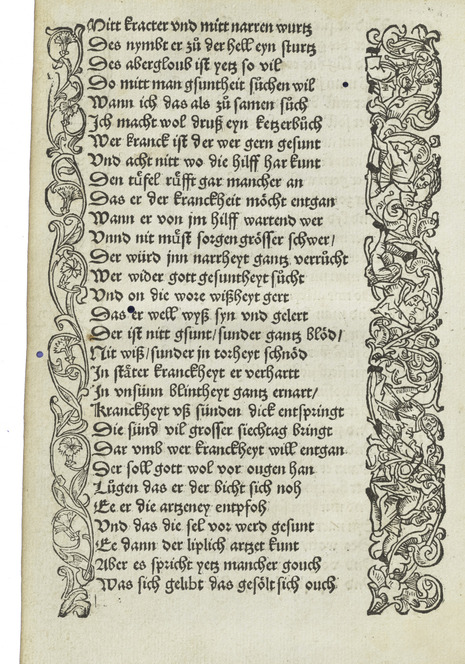 Mitt kracter vnd mitt narren wurtz
Des nymbt er zů der hell eyn sturtz
Des abergloub ist yetz so vil
Do mitt man gsuntheit sůchen wil
Wann ich das als zů samen sůch
Jch macht wol druß eyn ketzerbůch
Wer kranck ist der wer gern gesunt
Vnd acht nitt wo die hilff har kunt
Den tüfel růfft gar mancher an
Das er der kranckheit möcht entgan
Wann er von jm hilff wartend wer
Vnnd nit můst sorgen grösser schwer/
Der würd jnn narrheyt gantz verrücht
Wer wider gott gesuntheyt sůcht
Vnd on die wore wißheyt gert
Das er well wyß syn vnd gelert
Der ist nitt gsunt/sunder gantz blöd/
Nit wiß/sunder jn torheyt schnöd
Jn stäter kranckheyt er verhartt
Jn vnsünn blintheyt gantz ernart/
Kranckheyt vß sünden dick entspringt
Die sünd vil grosser siechtag bringt
Dar vmb wer kranckheyt will entgan
Der soll gott wol vor ougen han
Lůgen das er der bicht sich noh
Ee er die artzeney entpfoh
Vnd das die sel vor werd gesunt
Ee dann der liplich artzet kunt
Aber es spricht yetz mancher gouch
Was sich gelibt das gesölt sich ouch